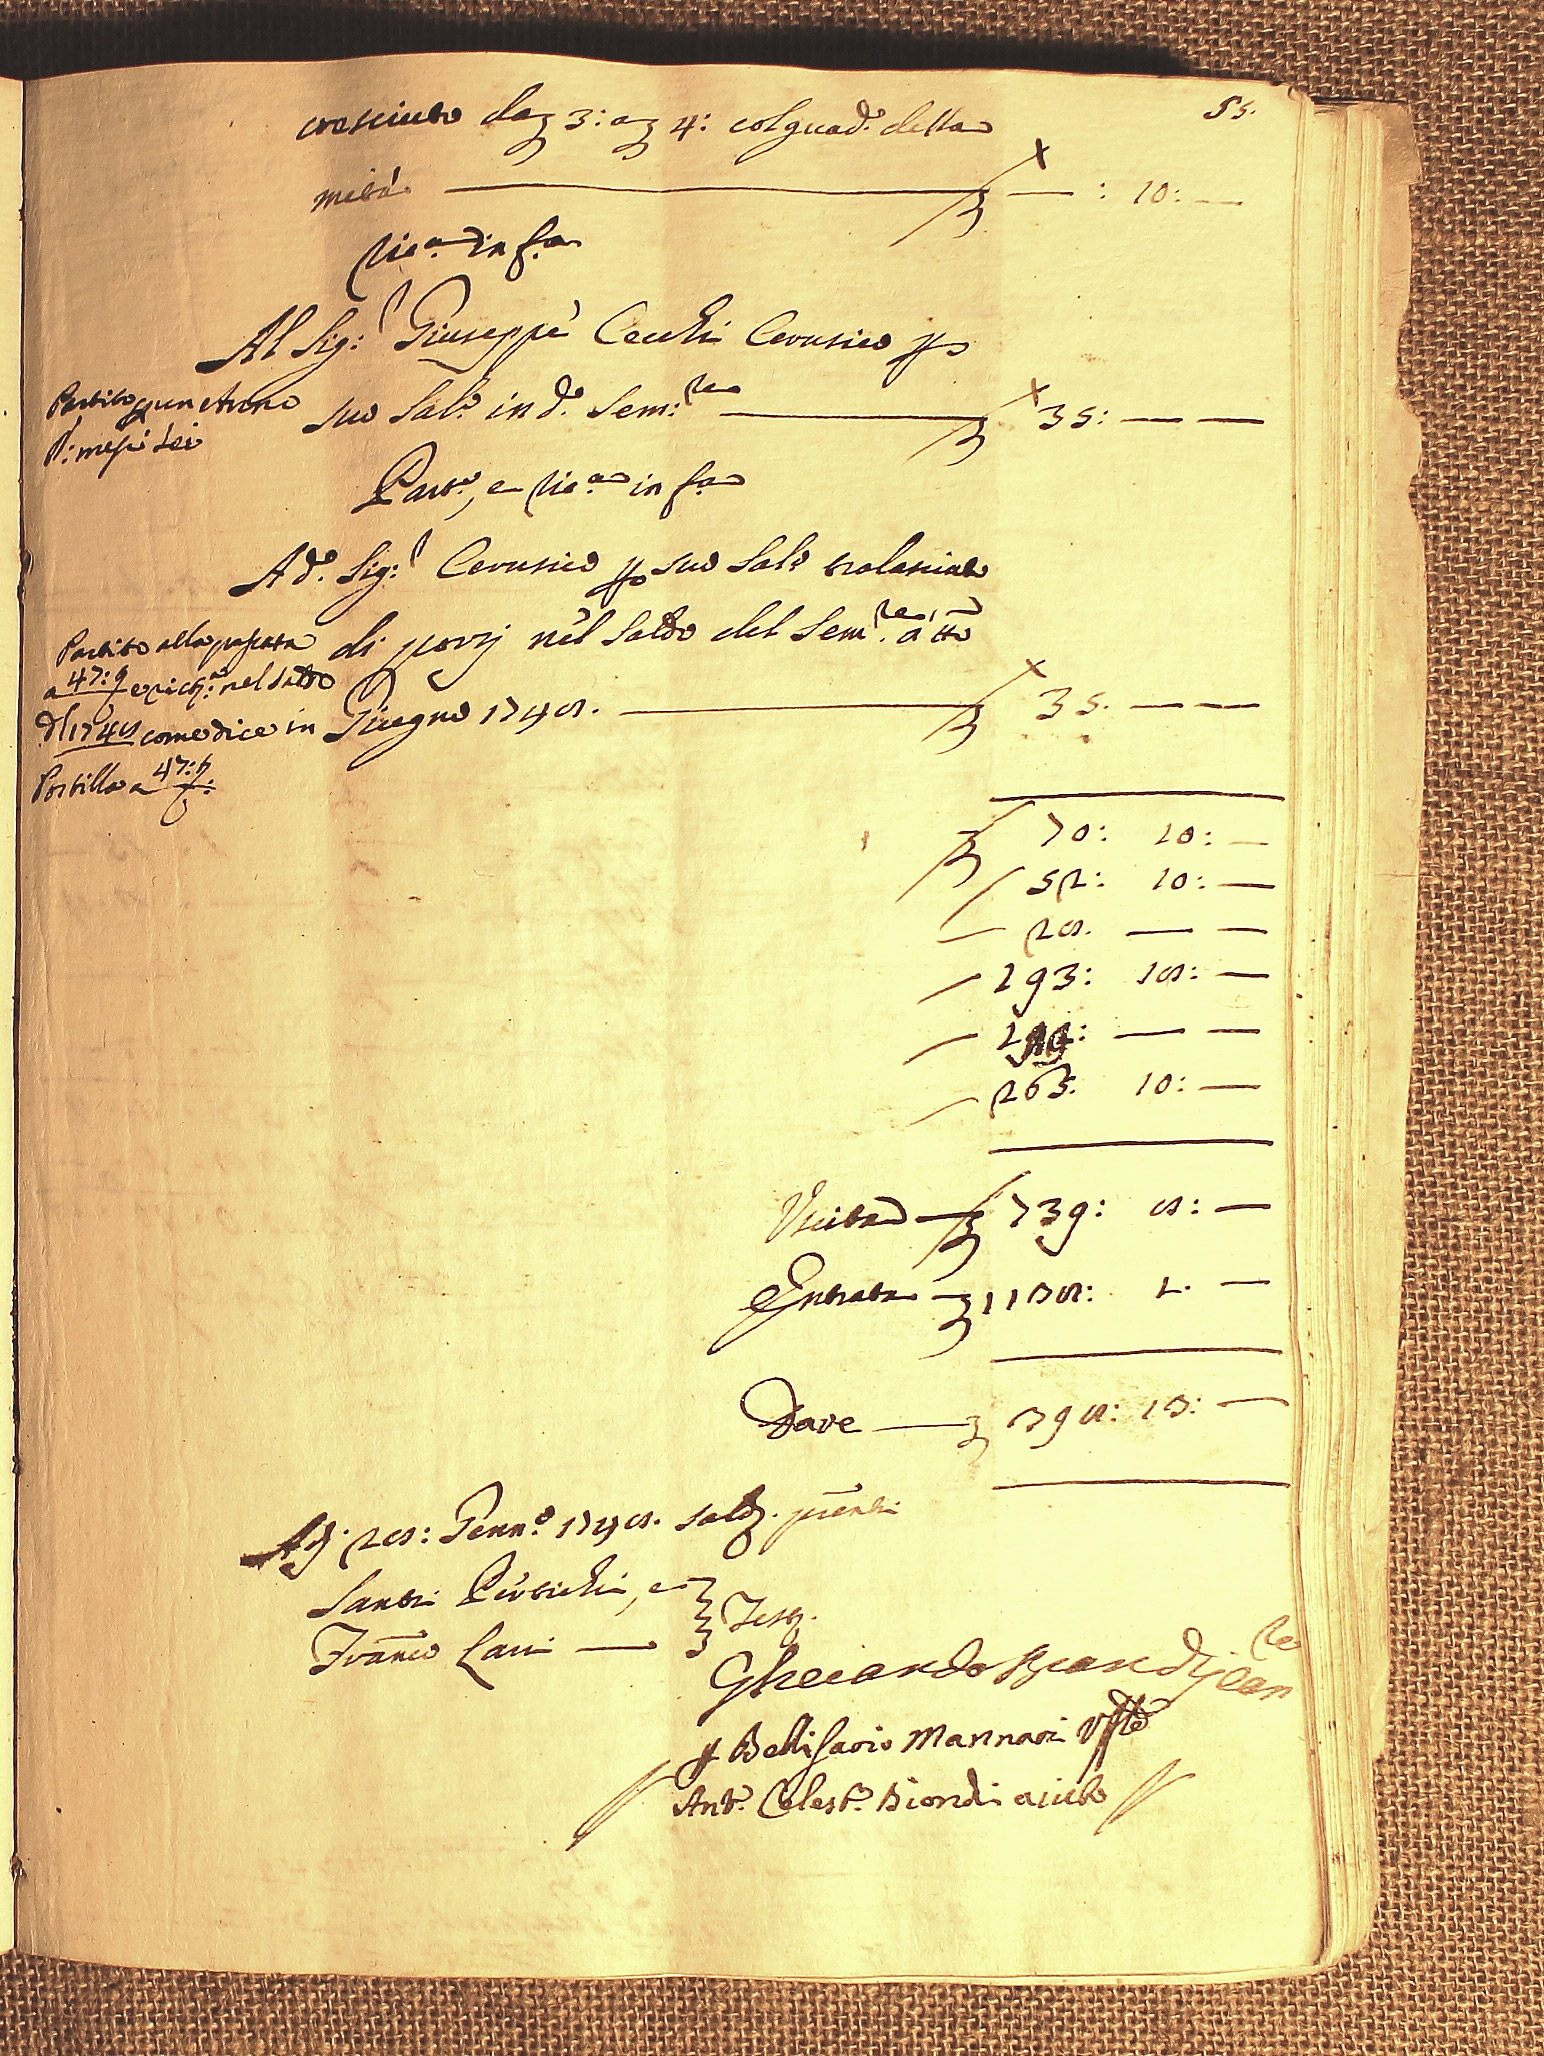 55.
cresciuto da 3: a 4: col guad.° della
metà — : 10: —
Ric.ª in f.ª
Al Sig:r Giuseppe Cecchi Cerusico p
suo Sal.° in d.° Sem:re — 35: — —
Partito p un Anno
p: mesi sei
Part.°, e Ric.ª in f.ª
A d.° Sig:r Cerusico p suo Sal.° tralasciato
di porsi nel Saldo del Sem.re a tto
Giugno 1748. — 35. — —
Partito alla passata
a 47: e rich:ª nel Saldo
d'l 1748 come dice in
Postilla a 47:
70: 10: —
52: 10: —
28. — —
193: 18: —
— —
265. 10: —
Uscita — 739: 8: —
Entrata — 1138: 1. —
Dare — 398: 13: —
Ad. 28: Genn.° 1748. sald. pñenti
Santi Pertichi, e
Franco Lari — Test.
Gherardo Brandi Canre
p Bellisario Mannari
Ant.° Celest.° Biondi aiuto